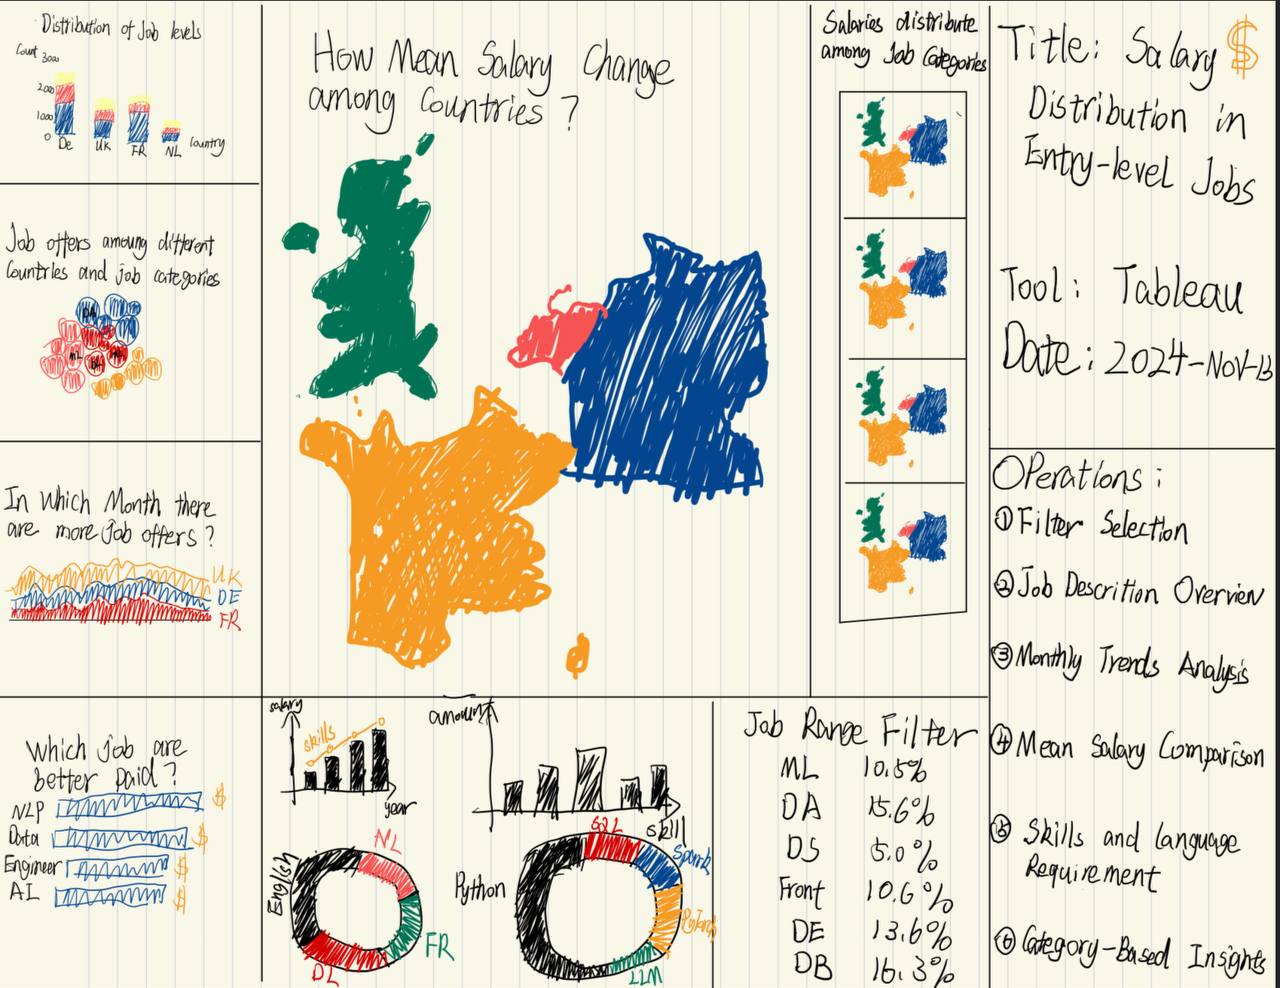 Distribution of Job levels
Count
3000
2000
1000
0
De
UK
FR
NL
Country
Job offers amoung different
Countries and job categories
DA
ML
In Which Month there
are more Job offers?
UK
DE
FR
Which job are
better paid?
NLP $
Data $
Engineer $
AI $
How Mean Salary Change
among Countries?
Salaries distribute
among Job Categories
salary
skills
year
amount
skill
English
NL
FR
DL
Python
SQL
Spark
PyTorch
LLM
Job Range Filter
ML 10.5%
DA 15.6%
DS 5.0%
Front 10.6%
DE 13.6%
DB 16.3%
Title: Salary $
Distribution in
Entry-level Jobs
Tool: Tableau
Date: 2024-Nov-13
Operations:
① Filter Selection
② Job Descrition Overview
③ Monthly Trends Analysis
④ Mean Salary Comparison
⑤ Skills and language
Requirement
⑥ Category-Based Insights